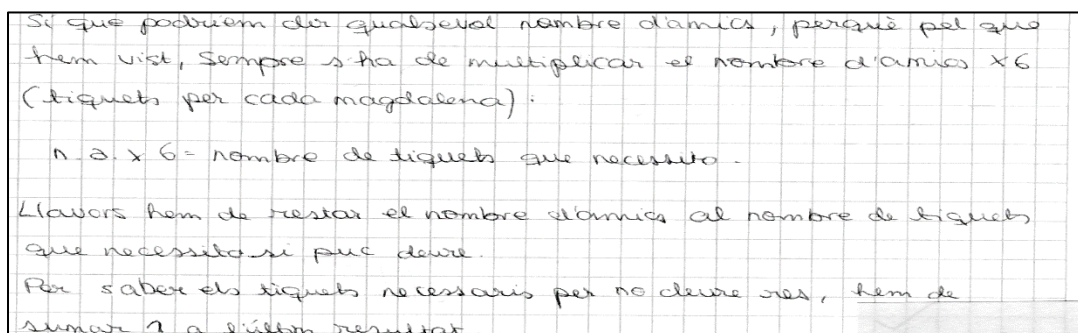 Sí que podríem dir qualsevol nombre d'amics, perquè pel que
hem vist, sempre s'ha de multiplicar el nombre d'amics x6
(tiquets per cada magdalena):
n. a. x 6 = nombre de tiquets que necessito.
Llavors hem de restar el nombre d'amics al nombre de tiquets
que necessito si puc deure.
Per saber els tiquets necessaris per no deure res, hem de
sumar 1 a l'últim resultat